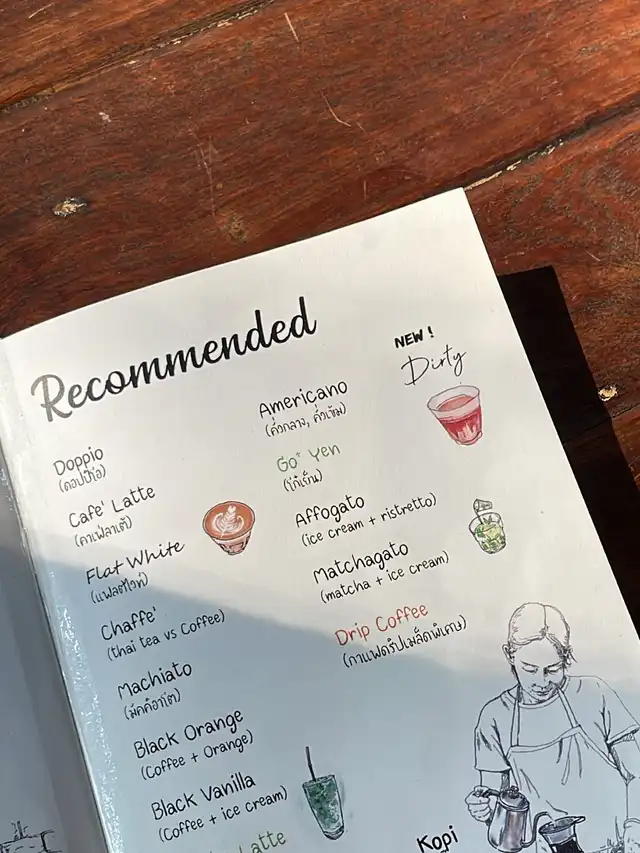 Recommended
Doppio
(ดอปปิโอ)
Cafe' Latte
(คาเฟ่ลาเต้)
Flat White
(แฟลตไวท์)
Chaffe'
(thai tea vs Coffee)
Machiato
(มัคคิอาโต)
Black Orange
(Coffee + Orange)
Black Vanilla
(Coffee + ice cream)
Latte
Americano
(คั่วกลาง, คั่วเข้ม)
Go* Yen
(โก้เย็น)
Affogato
(ice cream + ristretto)
Matchagato
(matcha + ice cream)
Drip Coffee
(กาแฟดริปเมล็ดพิเศษ)
NEW !
Dirty
Kopi